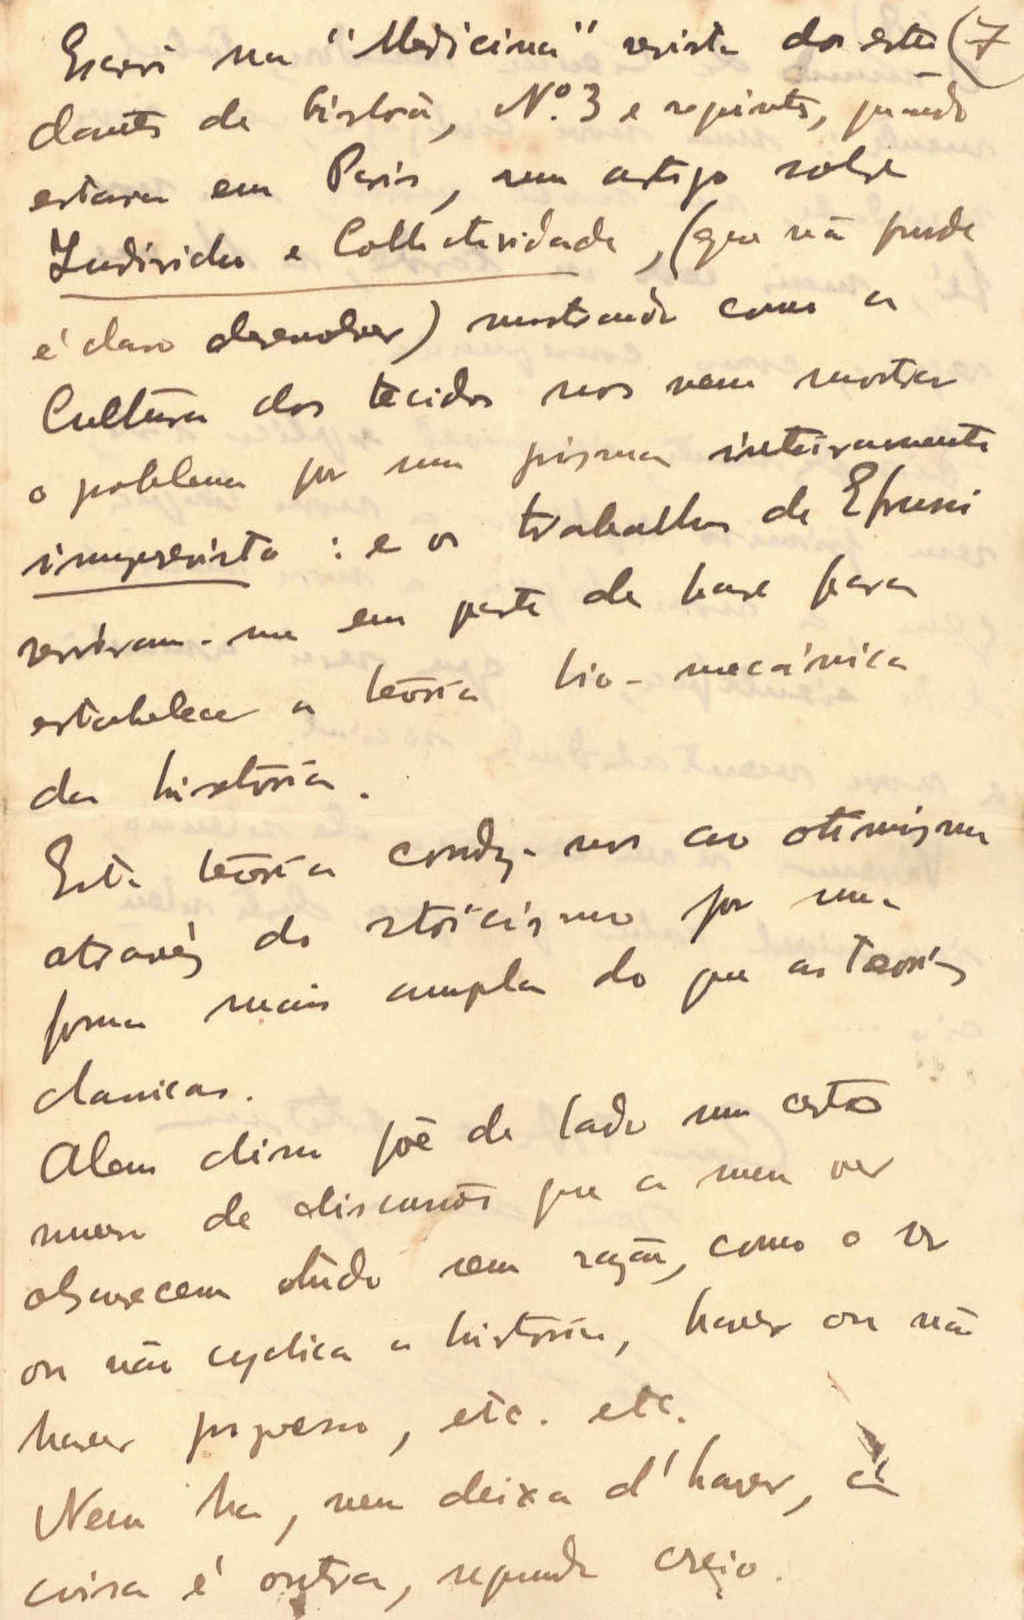 Escrevi na "Medicina" revista dos estu (7
dantes de Lisboa, Nº. 3 e seguintes, quando
estava em Paris, um artigo sobre
Individuo e Collectividade, (que não pude
é claro desenvolver) mostrando como a
Cultura dos tecidos nos vem mostrar
o problema por um prisma inteiramente
imprevisto : e os trabalhos de Efrussi
serviram-me em parte de base para
estabelecer a teoria bio-mecánica
da história.
Esta teoria conduz-nos ao otimismo
através do stoicismo por uma
forma mais ampla do que as teorias
classicas.
Alem disso põe de lado um certo
numero de discussões que a meu ver
obscurecem tudo sem razão, como o ser
ou não cyclica a história, haver ou não
haver progresso, etc. etc.
Nem ha, nem deixa d'haver, a
coisa é outra, segundo creio.